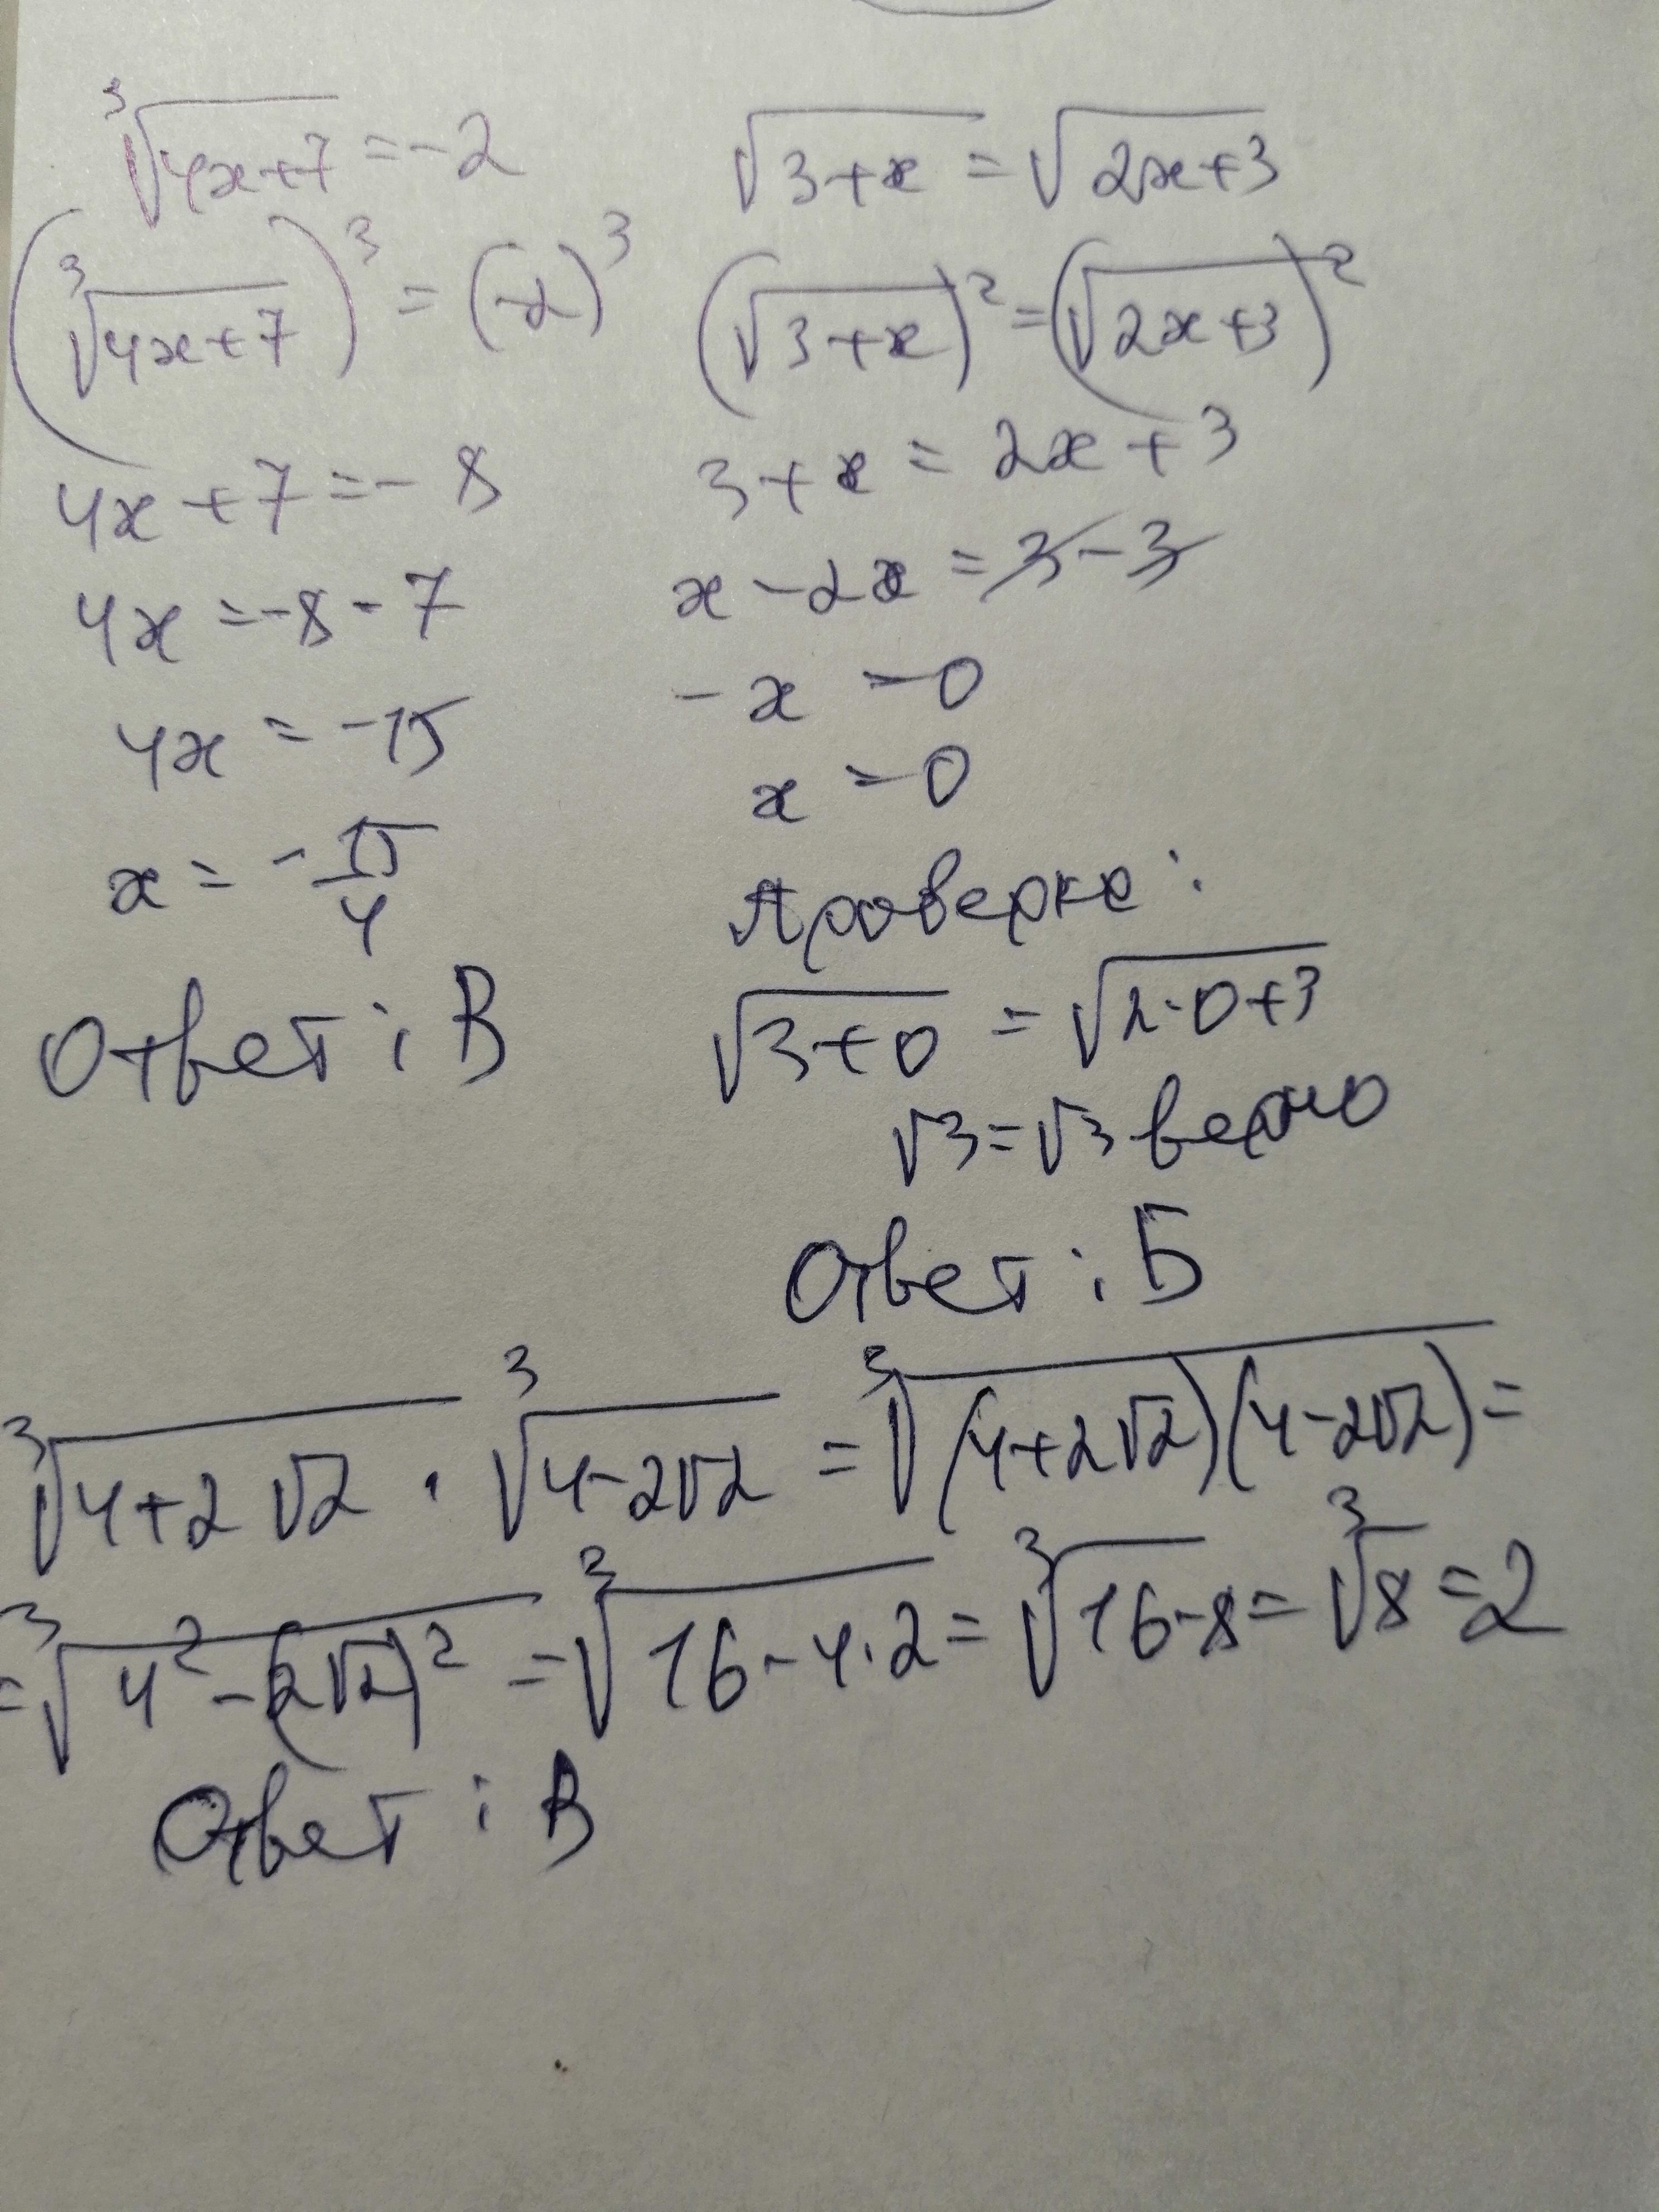 ∛(4x+7) = -2
(∛(4x+7))³ = (-2)³
4x + 7 = -8
4x = -8 - 7
4x = -15
x = -15/4
Ответ: В
√(3+x) = √(2x+3)
(√(3+x))² = (√(2x+3))²
3+x = 2x+3
x - 2x = 3 - 3
-x = 0
x = 0
Проверка:
√(3+0) = √(2·0+3)
√3 = √3 верно
Ответ: Б
∛(4+2√2) · ∛(4-2√2) = ∛((4+2√2)(4-2√2)) =
= ∛(4²-(2√2)²) = ∛(16-4·2) = ∛(16-8) = ∛8 = 2
Ответ: В